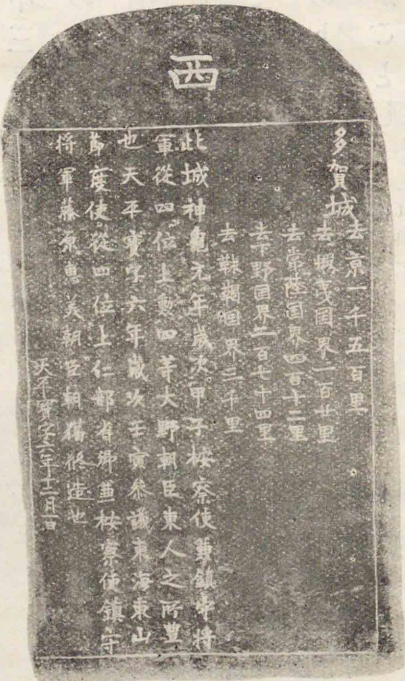 西
多賀城
去京一千五百里
去蝦夷國界一百廿里
去常陸國界四百十二里
去下野國界二百七十四里
去靺鞨國界三千里
此城神龜元年歳次甲子按察使兼鎮守將
軍從四位上勳四等大野朝臣東人之所置
也天平寶字六年歳次壬寅參議東海東山
節度使從四位上仁部省卿兼按察使鎮守
將軍藤原惠美朝臣朝獦修造也
天平寶字六年十二月一日